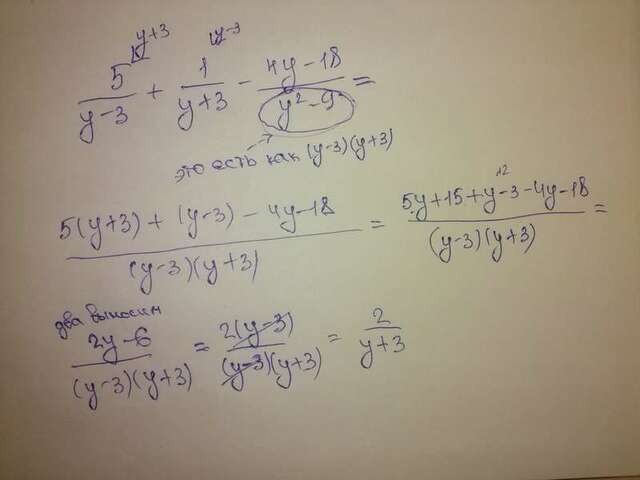 y+3 y-3
5/(y-3) + 1/(y+3) - (4y-18)/(y²-9) =
это есть как (y-3)(y+3)
(5(y+3) + (y-3) - 4y-18)/((y-3)(y+3)) = (5y+15+y-3-4y-18)/((y-3)(y+3)) =
12
два выносим
(2y-6)/((y-3)(y+3)) = (2(y-3))/((y-3)(y+3)) = 2/(y+3)